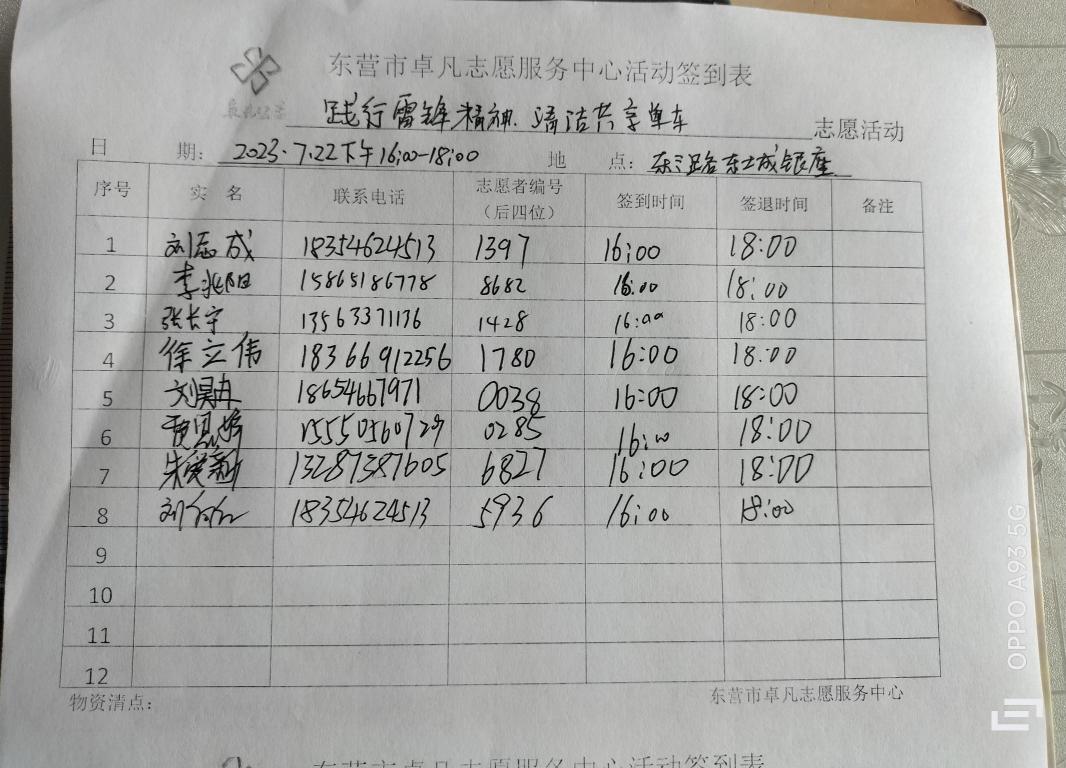 东营市卓凡志愿服务中心活动签到表
践行雷锋精神.清洁共享单车 志愿活动
日 期: 2023.7.22下午16:00-18:00 地 点: 东三路东城银座
序号 实 名 联系电话 志愿者编号（后四位） 签到时间 签退时间 备注
1 刘志成 18354624513 1397 16:00 18:00
2 李兆阳 15865186778 8682 16:00 18:00
3 张长宁 13563371136 1428 16:00 18:00
4 徐立伟 18366912256 1780 16:00 18:00
5 刘昊冉 18654667971 0038 16:00 18:00
6 15550560729 0285 16:00 18:00
7 朱爱新 13287387605 6827 16:00 18:00
8 18354624513 5936 16:00 18:00
9
10
11
12
物资清点: 东营市卓凡志愿服务中心
东营市卓凡志愿服务中心活动签到表
OPPO A93 5G